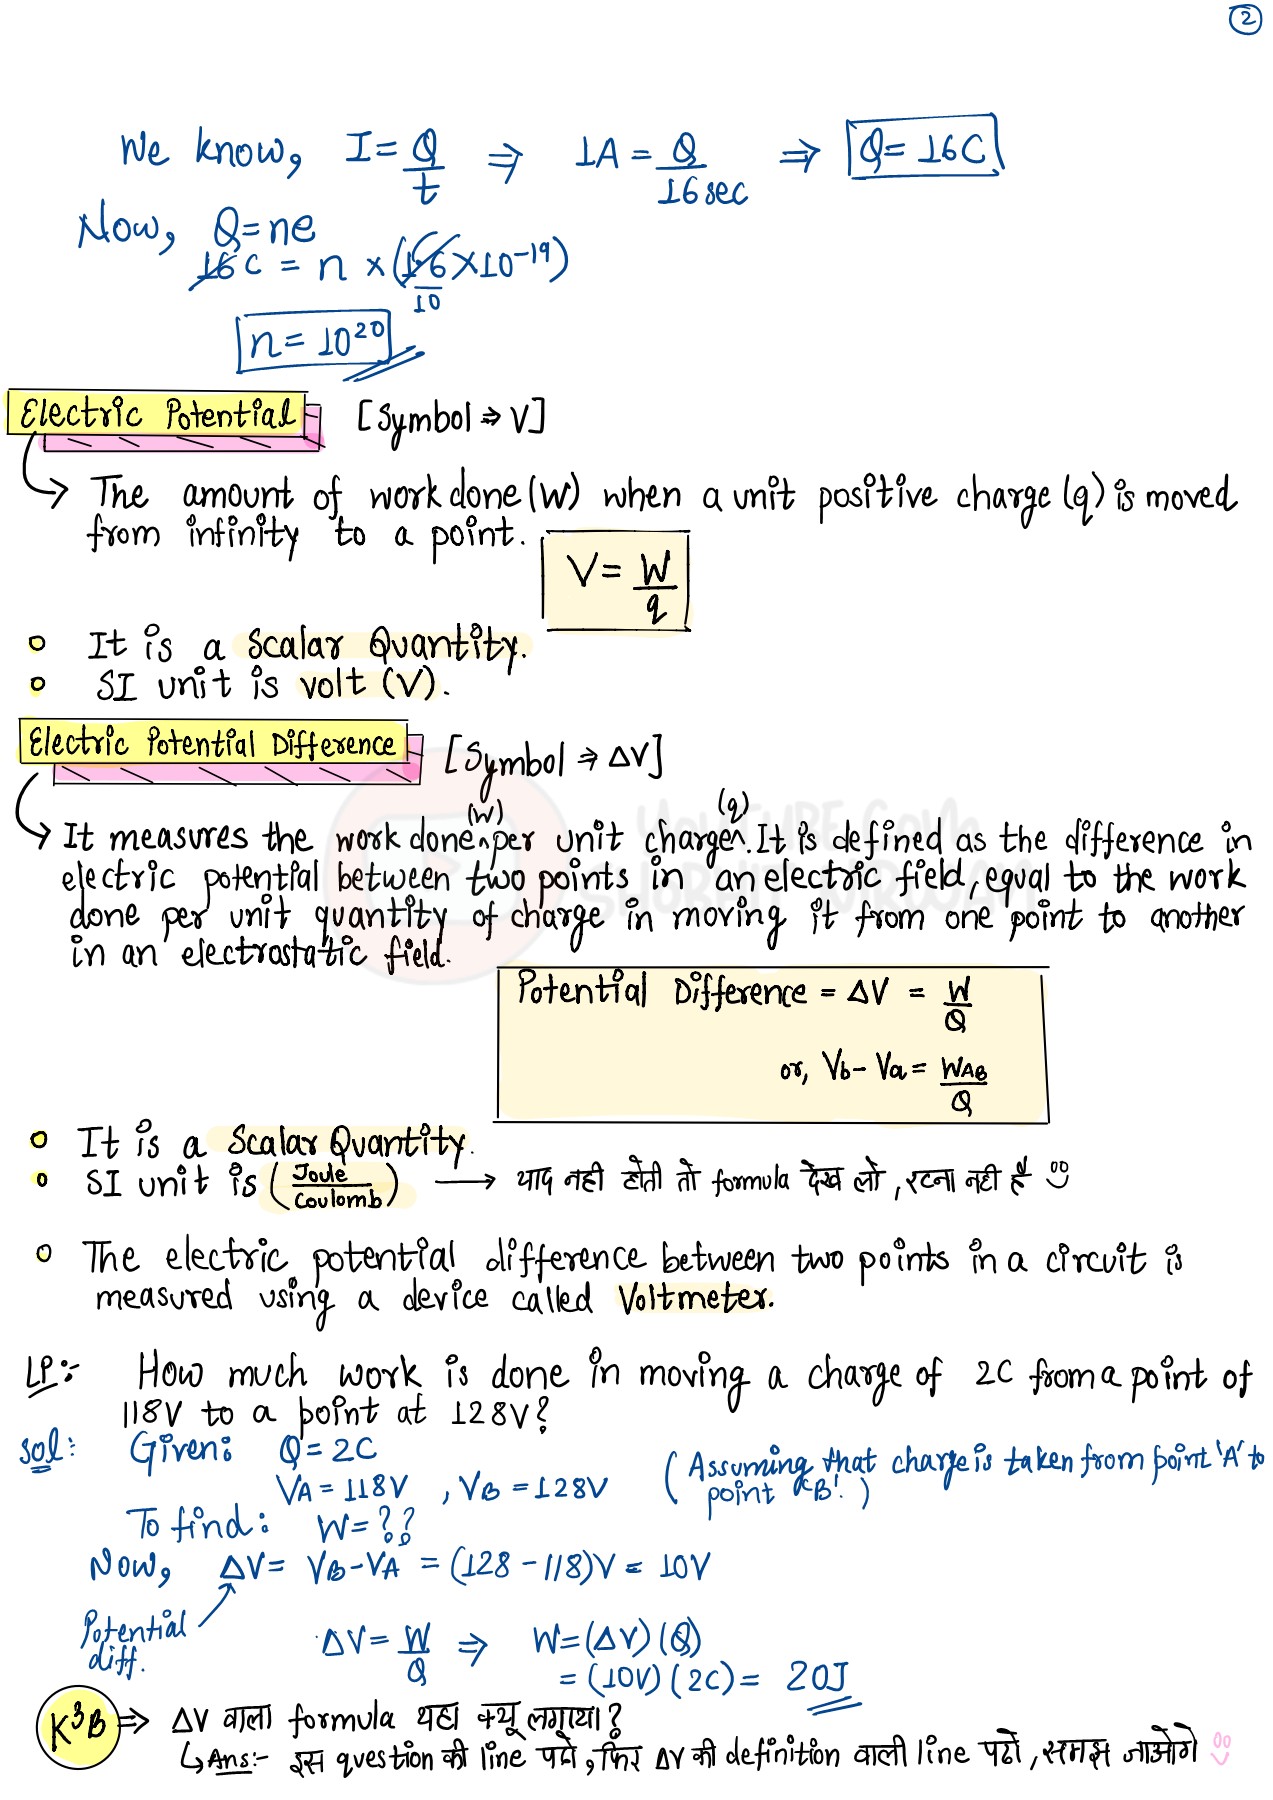 2
We know, I = Q/t ⇒ 1A = Q/16 sec ⇒ Q = 16C
Now, Q = ne
16 C = n × (1.6/10 × 10⁻¹⁹)
n = 10²⁰
Electric Potential [Symbol ⇒ V]
→ The amount of work done (W) when a unit positive charge (q) is moved
from infinity to a point.
V = W/q
○ It is a Scalar Quantity.
○ SI unit is volt (V).
Electric Potential Difference [Symbol ⇒ ΔV]
→ It measures the work done (W) per unit charge (q). It is defined as the difference in
electric potential between two points in an electric field, equal to the work
done per unit quantity of charge in moving it from one point to another
in an electrostatic field.
Potential Difference = ΔV = W/Q
or, Vb - Va = WAB/Q
○ It is a Scalar Quantity.
○ SI unit is (Joule/Coulomb) → याद नही होती तो formula देख लो, रटना नही है
○ The electric potential difference between two points in a circuit is
measured using a device called Voltmeter.
LP:- How much work is done in moving a charge of 2C from a point of
118V to a point at 128V?
Sol: Given: Q = 2C
VA = 118V , VB = 128V (Assuming that charge is taken from point 'A' to
point 'B'.)
To find: W = ??
Now, ΔV = VB - VA = (128 - 118)V = 10V
Potential
diff.
ΔV = W/Q ⇒ W = (ΔV) (Q)
= (10V) (2C) = 20J
K³B ⇒ ΔV वाला formula यहा क्यू लगाया?
↳ Ans:- इस question की line पढो, फिर ΔV की definition वाली line पढो, समझ जाओगे
YOUTUBE.COM
SHOBHIT NIRWAN